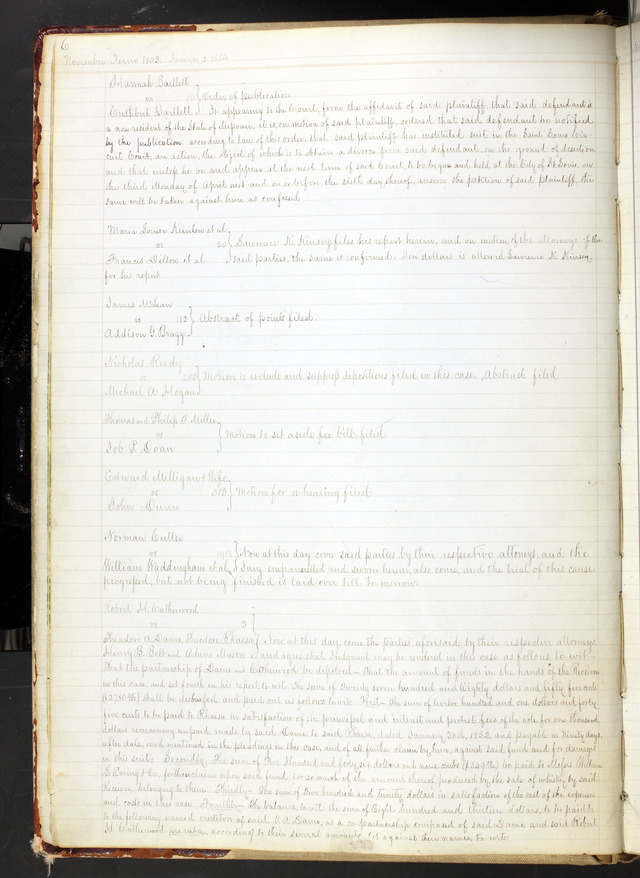 6
November Term 1853. January 5 1854
Hannah Bartlett
vs Order of publication
Cuthbut Bartlett It appearing to the Court, from the affidavit of said plaintiff, that said defendant is
a non resident of the State of Missouri, it is, on motion of said plaintiff, ordered that said defendant be notified
by the publication according to law of this order, that said plaintiff has instituted suit in the Saint Louis Cir-
cuit Court, an action, the object of which is to obtain a divorce from said defendant, on the ground of desertion
and that unless he be and appear at the next term of said Court, to be begun and held at the City of St Louis, on
the third Monday of April next, and on or before the sixth day thereof, answer the petition of said plaintiff, the
same will be taken against him as confessed
Maria Louisa et al
vs 20 Lawrence K. Kinsey files his report herein, and on motion of the attorneys of the
Francis Dillow et al said parties, the same is confirmed. Ten dollars is allowed Lawrence K. Kinsey
for his report
James McLean
vs 183 Abstract of points filed.
Addison G. Bragg
Nicholas Reedy
vs 203 Motion to exclude and suppress depositions filed in this case. Abstract filed
Michael A Hogan
Thomas and Philip D. Miller
vs Motion to set aside fee bill filed
Job P. Doan
Edward Milligan & Wife
vs 313 Motion for rehearing filed
John Dunn
Norman Cutler
vs Now at this day come said parties by their respective attorneys, and the
William Waddingham et al Jury empannelled and sworn herein, also come, and the trial of this cause
progressed, but not being finished is laid over till to-morrow.
Robert M. Catherwood
vs 5
Theodore A. Dame, Theodore Now at this day, come the parties aforesaid, by their respective attorneys
Henry B. Belt and Adam Mason and agree that Judgment may be rendered in this case, as follows, to wit—
That the partnership of Dame and Catherwood be dissolved — That the amount of funds in the hands of the Receiver
in this case, and set fourth in his report, to wit. The sum of Twenty seven hundred and Eighty dollars and fifty five cents
shall be disbursed and paid out as follows to wit. First. The sum of twelve hundred and one dollars and forty
five cents to be paid to in satisfaction of the principal and interest and protest fees of the note for one thousand
dollars remaining unpaid made by said Dame to said dated January 30th, 1852, and payable in ninety days
after date, and mentioned in the pleadings in this case, and of all further claim by him, against said fund and for damages
in this suit. Secondly. The sum of Five Hundred and forty six dollars and nine cents be paid to Messrs William
& Co, for their claim upon said fund, for so much of the amount thereof produced by the sale of whisky by said
Receiver belonging to them. Thirdly. The sum of Two hundred and twenty dollars in satisfaction of the cost of the expenses
and costs in this case. Fourthly. The balance to wit the sum of Eight hundred and thirteen dollars, to be paid to
to the following named creditors of said T. A Dame, as a co-partnership composed of said Dame and said Robert
M. Catherwood pro rata, according to their several amounts set against their names, to wit: